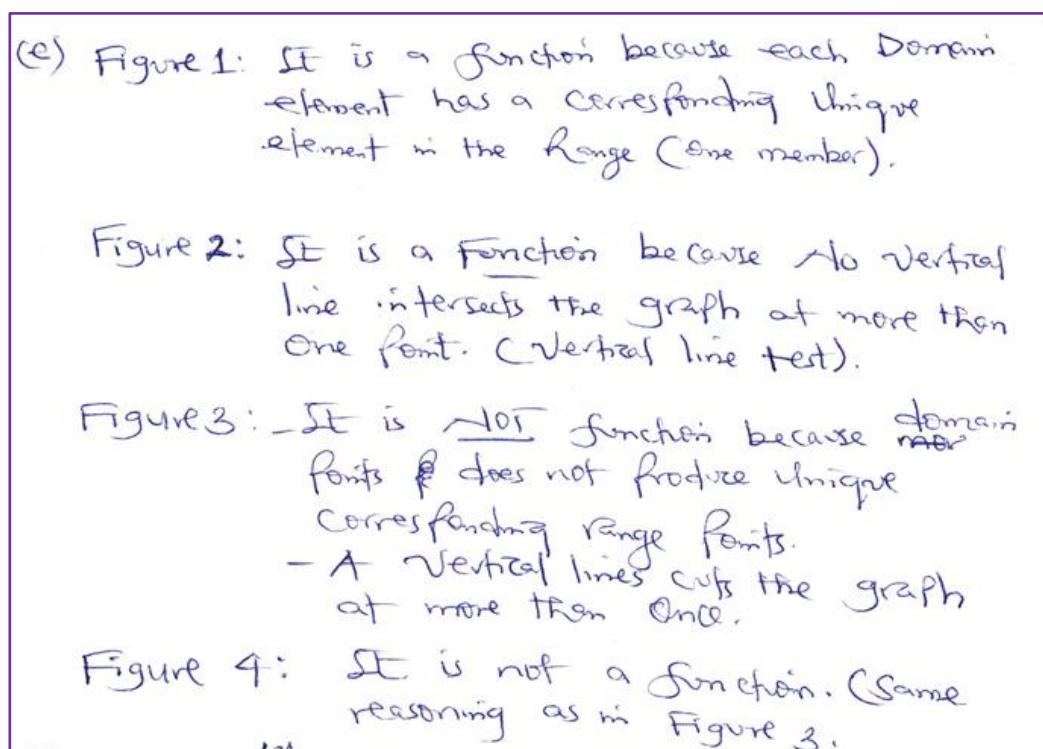 (e) Figure 1: It is a function because each Domain
element has a corresponding Unique
element in the Range (One member).
Figure 2: It is a Function because No Vertical
line intersects the graph at more than
One Point. (Vertical line test).
Figure 3: - It is NOT function because domain
Points does not Produce Unique
Corresponding range Points.
- A Vertical lines cuts the graph
at more than Once.
Figure 4: It is not a function. (Same
reasoning as in Figure 3.